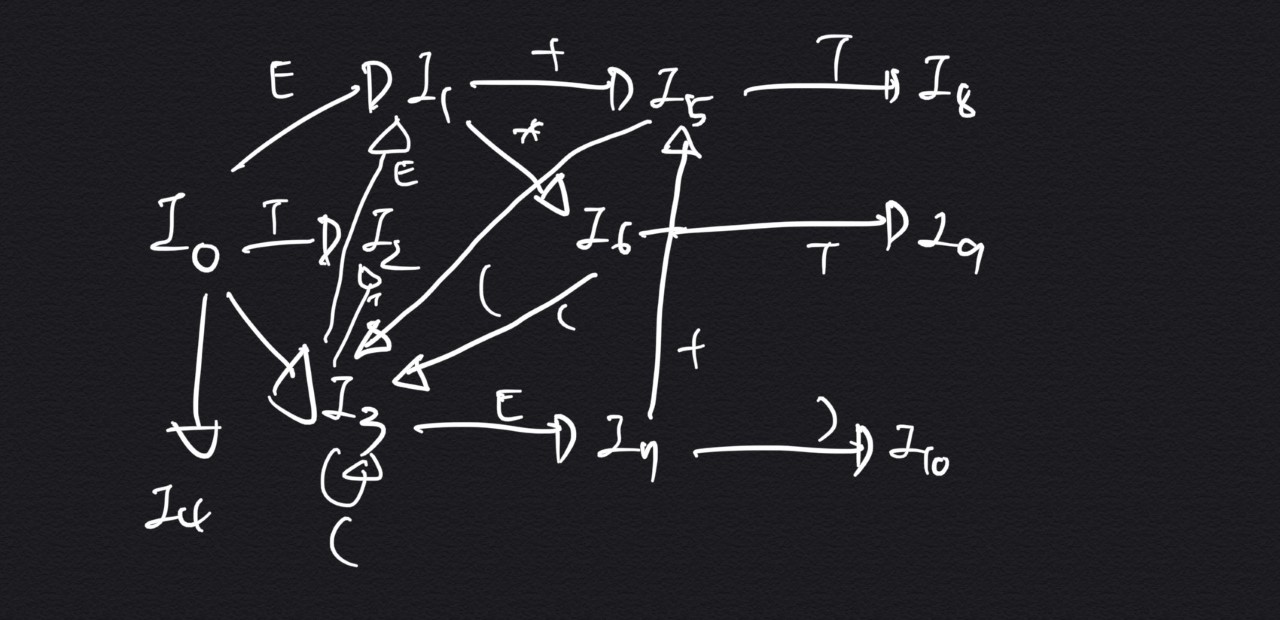 E I₁ + I₅ T I₈
*
E
I₀ T I₂ I₆ T I₉
T ( (
+
I₃ E I₇ ) I₁₀
I₄
(